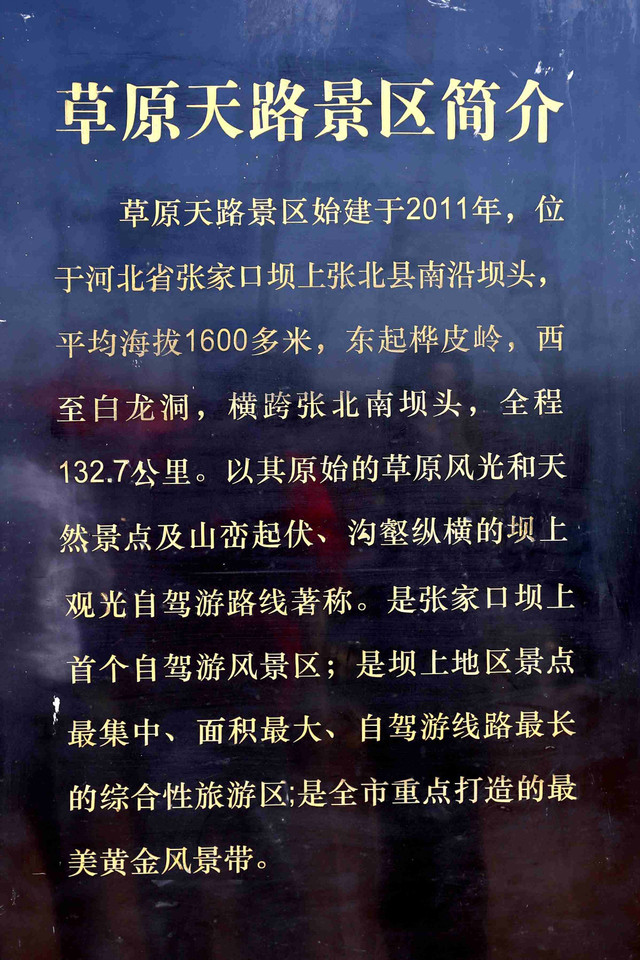 草原天路景区简介
草原天路景区始建于2011年，位
于河北省张家口坝上张北县南沿坝头，
平均海拔1600多米，东起桦皮岭，西
至白龙洞，横跨张北南坝头，全程
132.7公里。以其原始的草原风光和天
然景点及山峦起伏、沟壑纵横的坝上
观光自驾游路线著称。是张家口坝上
首个自驾游风景区；是坝上地区景点
最集中、面积最大、自驾游线路最长
的综合性旅游区;是全市重点打造的最
美黄金风景带。